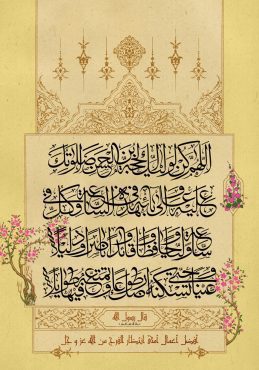 اللهم کن لولیک الحجة بن الحسن صلواتک
علیه و علی آبائه فی هذه الساعة و فی کل
ساعة ولیا و حافظا و قائدا و ناصرا و دلیلا
و عینا حتی تسکنه ارضک طوعا و تمتعه فیها طویلا
قال رسول الله
أفضل أعمال أمتي انتظار الفرج من الله عز و جل